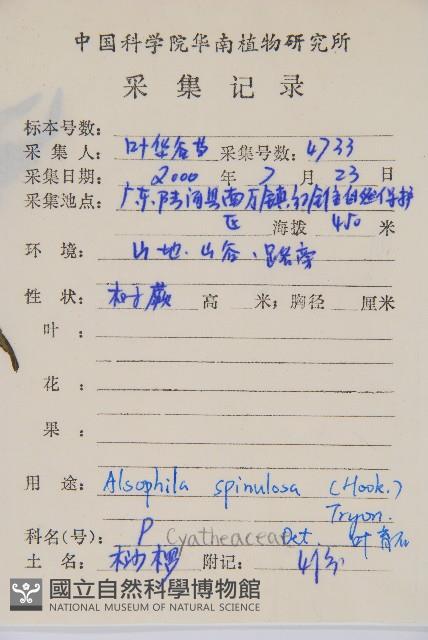 中国科学院华南植物研究所
采集记录
标本号数:
采集人: 叶华谷等 采集号数: 4733
采集日期: 2000 年 7 月 23 日
采集池点: 广东.陆河县南万镇红锥自然保护
区 海拨 450 米
环境: 山地.山谷.路旁
性状: 树蕨 高 米; 胸径 厘米
叶:
花:
果:
用途: Alsophila spinulosa (Hook.)
Tryon.
科名(号): P Cyatheaceae Det. 叶育石
土名: 桫椤 附记: 4份
國立自然科學博物館
NATIONAL MUSEUM OF NATURAL SCIENCE